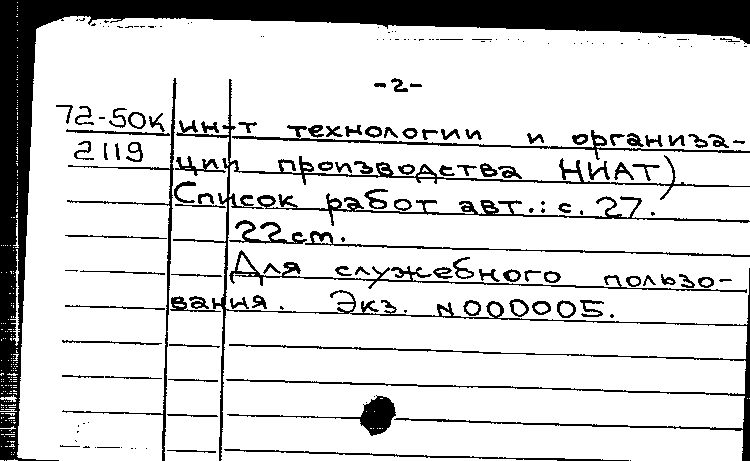 -2-
72-50К ин-т технологии и организа-
2119 ции производства НИАТ).
Список работ авт.: с. 27.
22 ст.
Для служебного пользо-
вания. Экз. N000005.